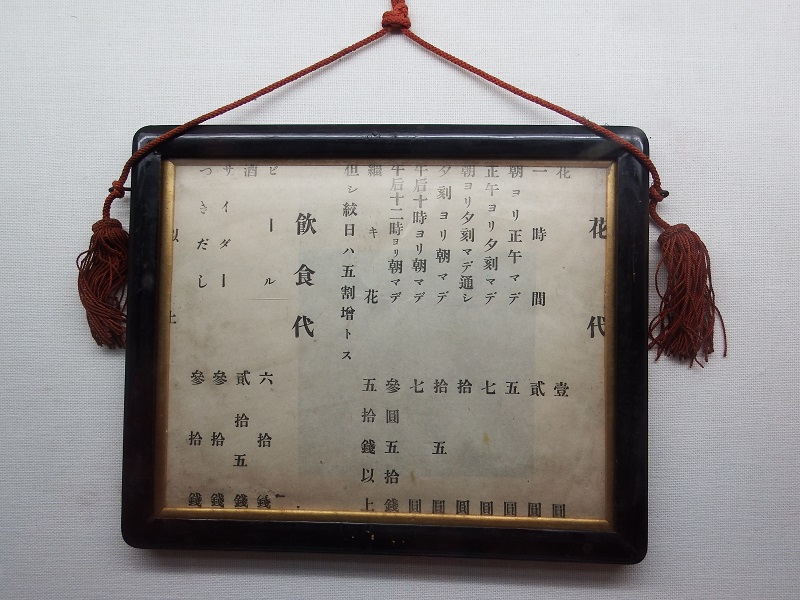 花代
花 壹圓
一時間 貳圓
朝ヨリ正午マデ 五圓
正午ヨリ夕刻マデ 七圓
朝ヨリ夕刻マデ通シ 拾圓
夕刻ヨリ朝マデ 拾五圓
午后十時ヨリ朝マデ 七圓
午后十二時ヨリ朝マデ 參圓五拾錢
線キ花 五拾錢以上
但シ紋日ハ五割增トス
飮食代
ビール 六拾錢
酒 貳拾五錢
サイダー 參拾錢
つきだし 參拾錢
以上